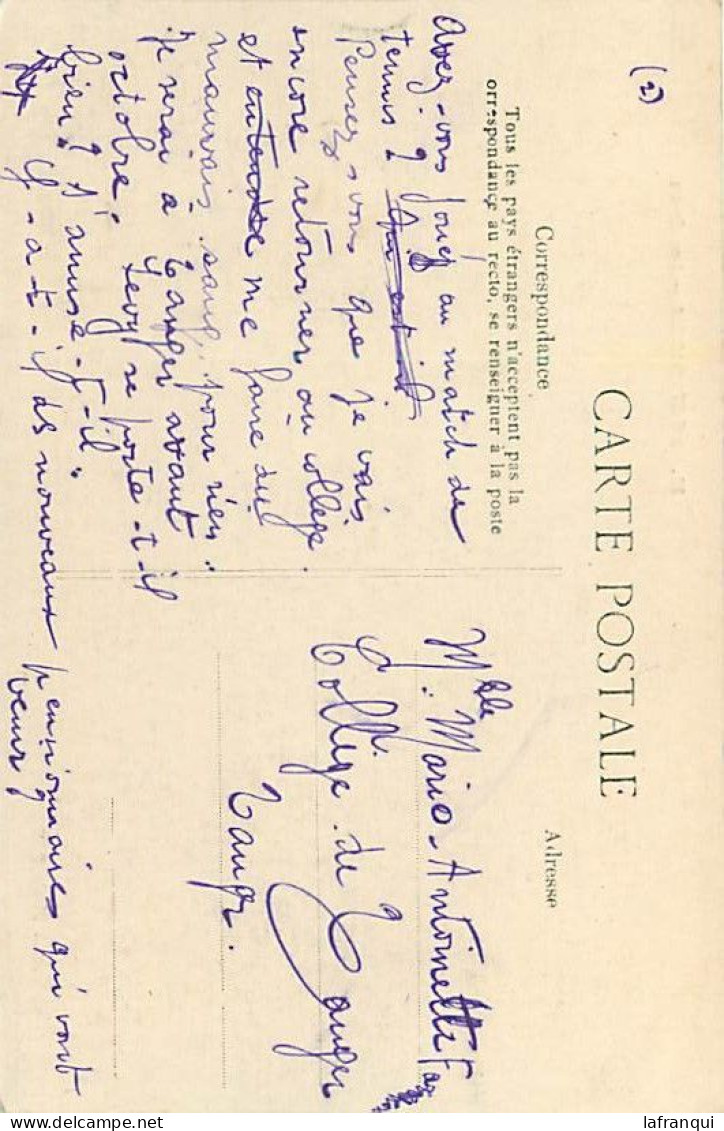 (2)
CARTE POSTALE
Correspondance
Adresse
Tous les pays étrangers n'acceptent pas la
orrespondance au recto, se renseigner à la poste
Avez-vous joué au match de
tennis ?
Pensez vous que je vais
encore retourner au collège
et entendre me faire du
mauvais sang, pour rien.
Je serai à Tanger avant
octobre. Levy se porte-t-il
bien ? S'amuse-t-il ?
Y-a-t-il des nouveaux pensionnaires qui vont
venir ?
Mlle M. Marie-Antoinette
Collège de Tanger
Tanger.
lafranqui